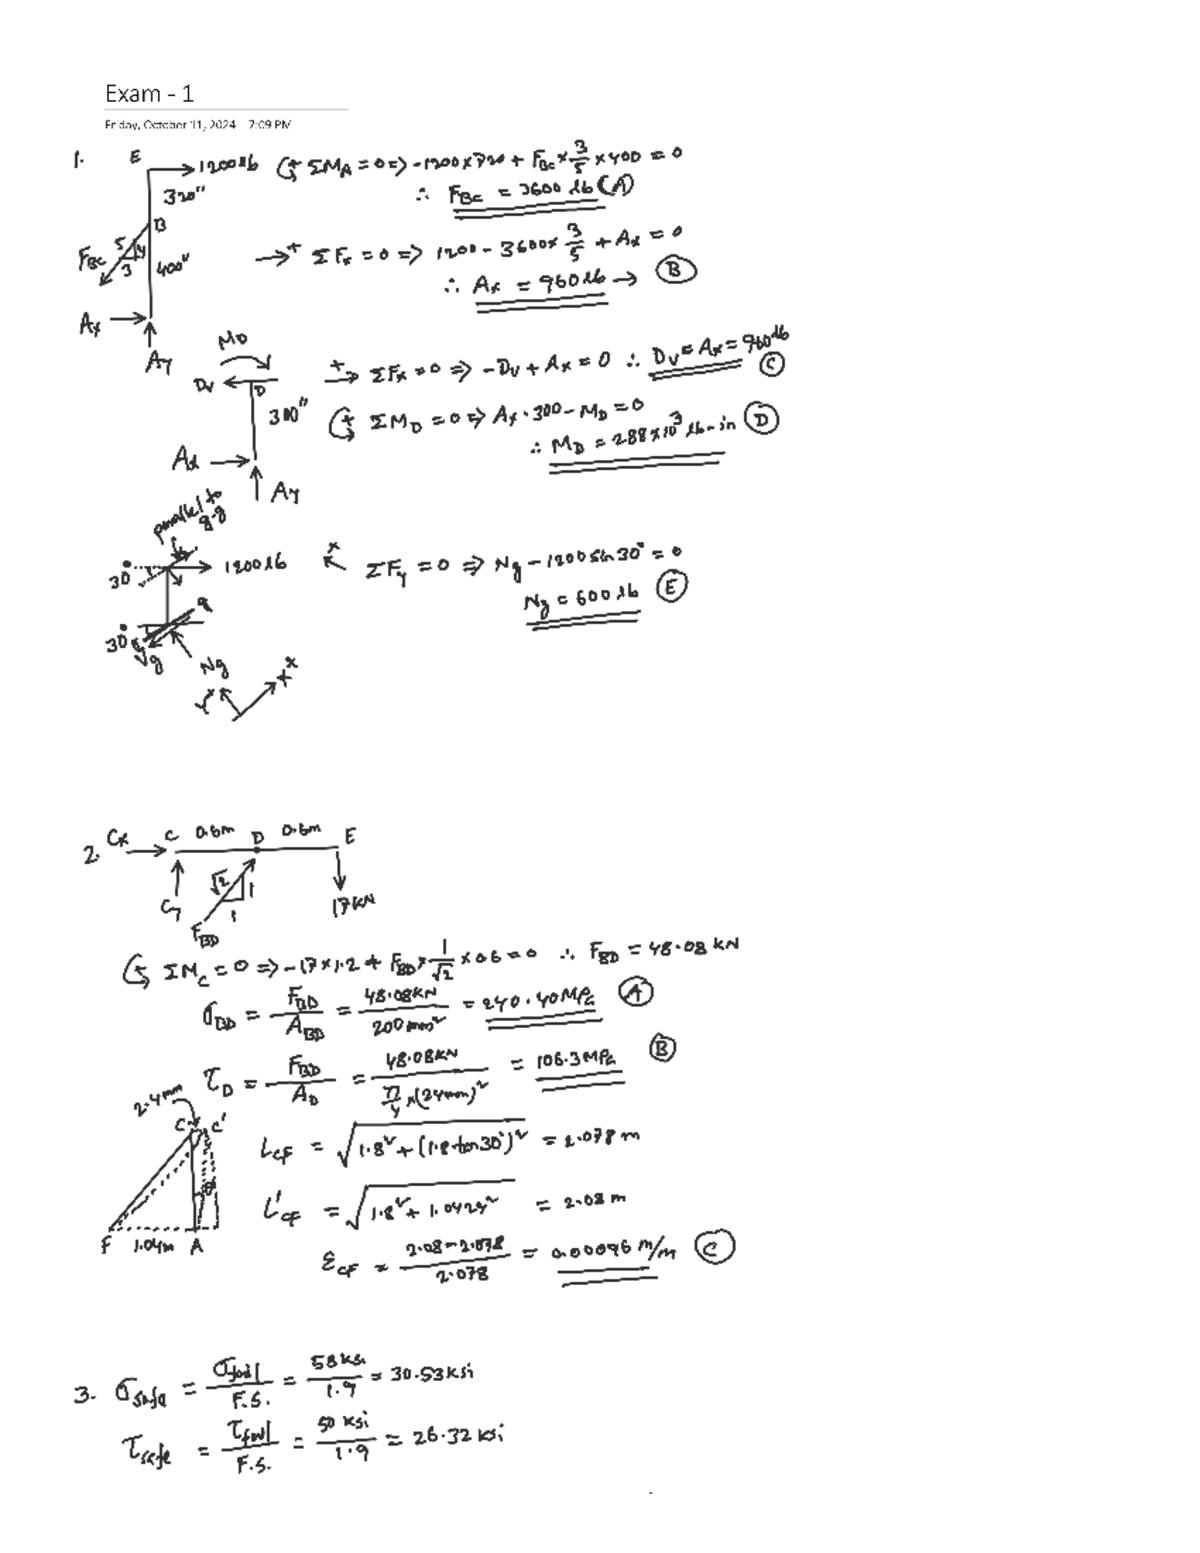 Exam - 1
Friday, October 11, 2024 7:09 PM
1. E → 1200 lb ΣM_A = 0 => -1200×720 + F_BC × 3/5 × 400 = 0
320"
∴ F_BC = 3600 lb (A)
B
F_BC 5 4 3 400"
→+ ΣF_x = 0 => 1200 - 3600× 3/5 + A_x = 0
∴ A_x = 960 lb → (B)
A_x
A_y
M_D
D_V D
→+ ΣF_x = 0 => -D_V + A_x = 0 ∴ D_V = A_x = 960 lb (C)
300"
ΣM_D = 0 => A_x · 300 - M_D = 0
∴ M_D = 288×10³ lb-in (D)
A_x
A_y
parallel to g-g
30° 1200 lb
ΣF_y = 0 => N_g - 1200 sin 30° = 0
N_g = 600 lb (E)
30° V_g
N_g
2. C_x C 0.6m D 0.6m E
√2 1 1
C_y 17 kN
F_BD
ΣM_C = 0 => -17×1.2 + F_BD × 1/√2 × 0.6 = 0 ∴ F_BD = 48.08 kN
σ_BD = F_BD/A_BD = 48.08 kN/200 mm² = 240.40 MPa (A)
τ_D = F_BD/A_D = 48.08 kN/(π/4 × (24mm)²) = 106.3 MPa (B)
2.4mm
C C'
L_CF = √(1.8² + (1.8 tan 30°)²) = 2.078 m
L'_CF = √(1.8² + 1.042²) = 2.08 m
F 1.04m A
ε_CF = (2.08 - 2.078)/2.078 = 0.00096 m/m (C)
3. σ_safe = σ_fail/F.S. = 58 ksi/1.9 = 30.53 ksi
τ_safe = τ_fail/F.S. = 50 ksi/1.9 = 26.32 ksi